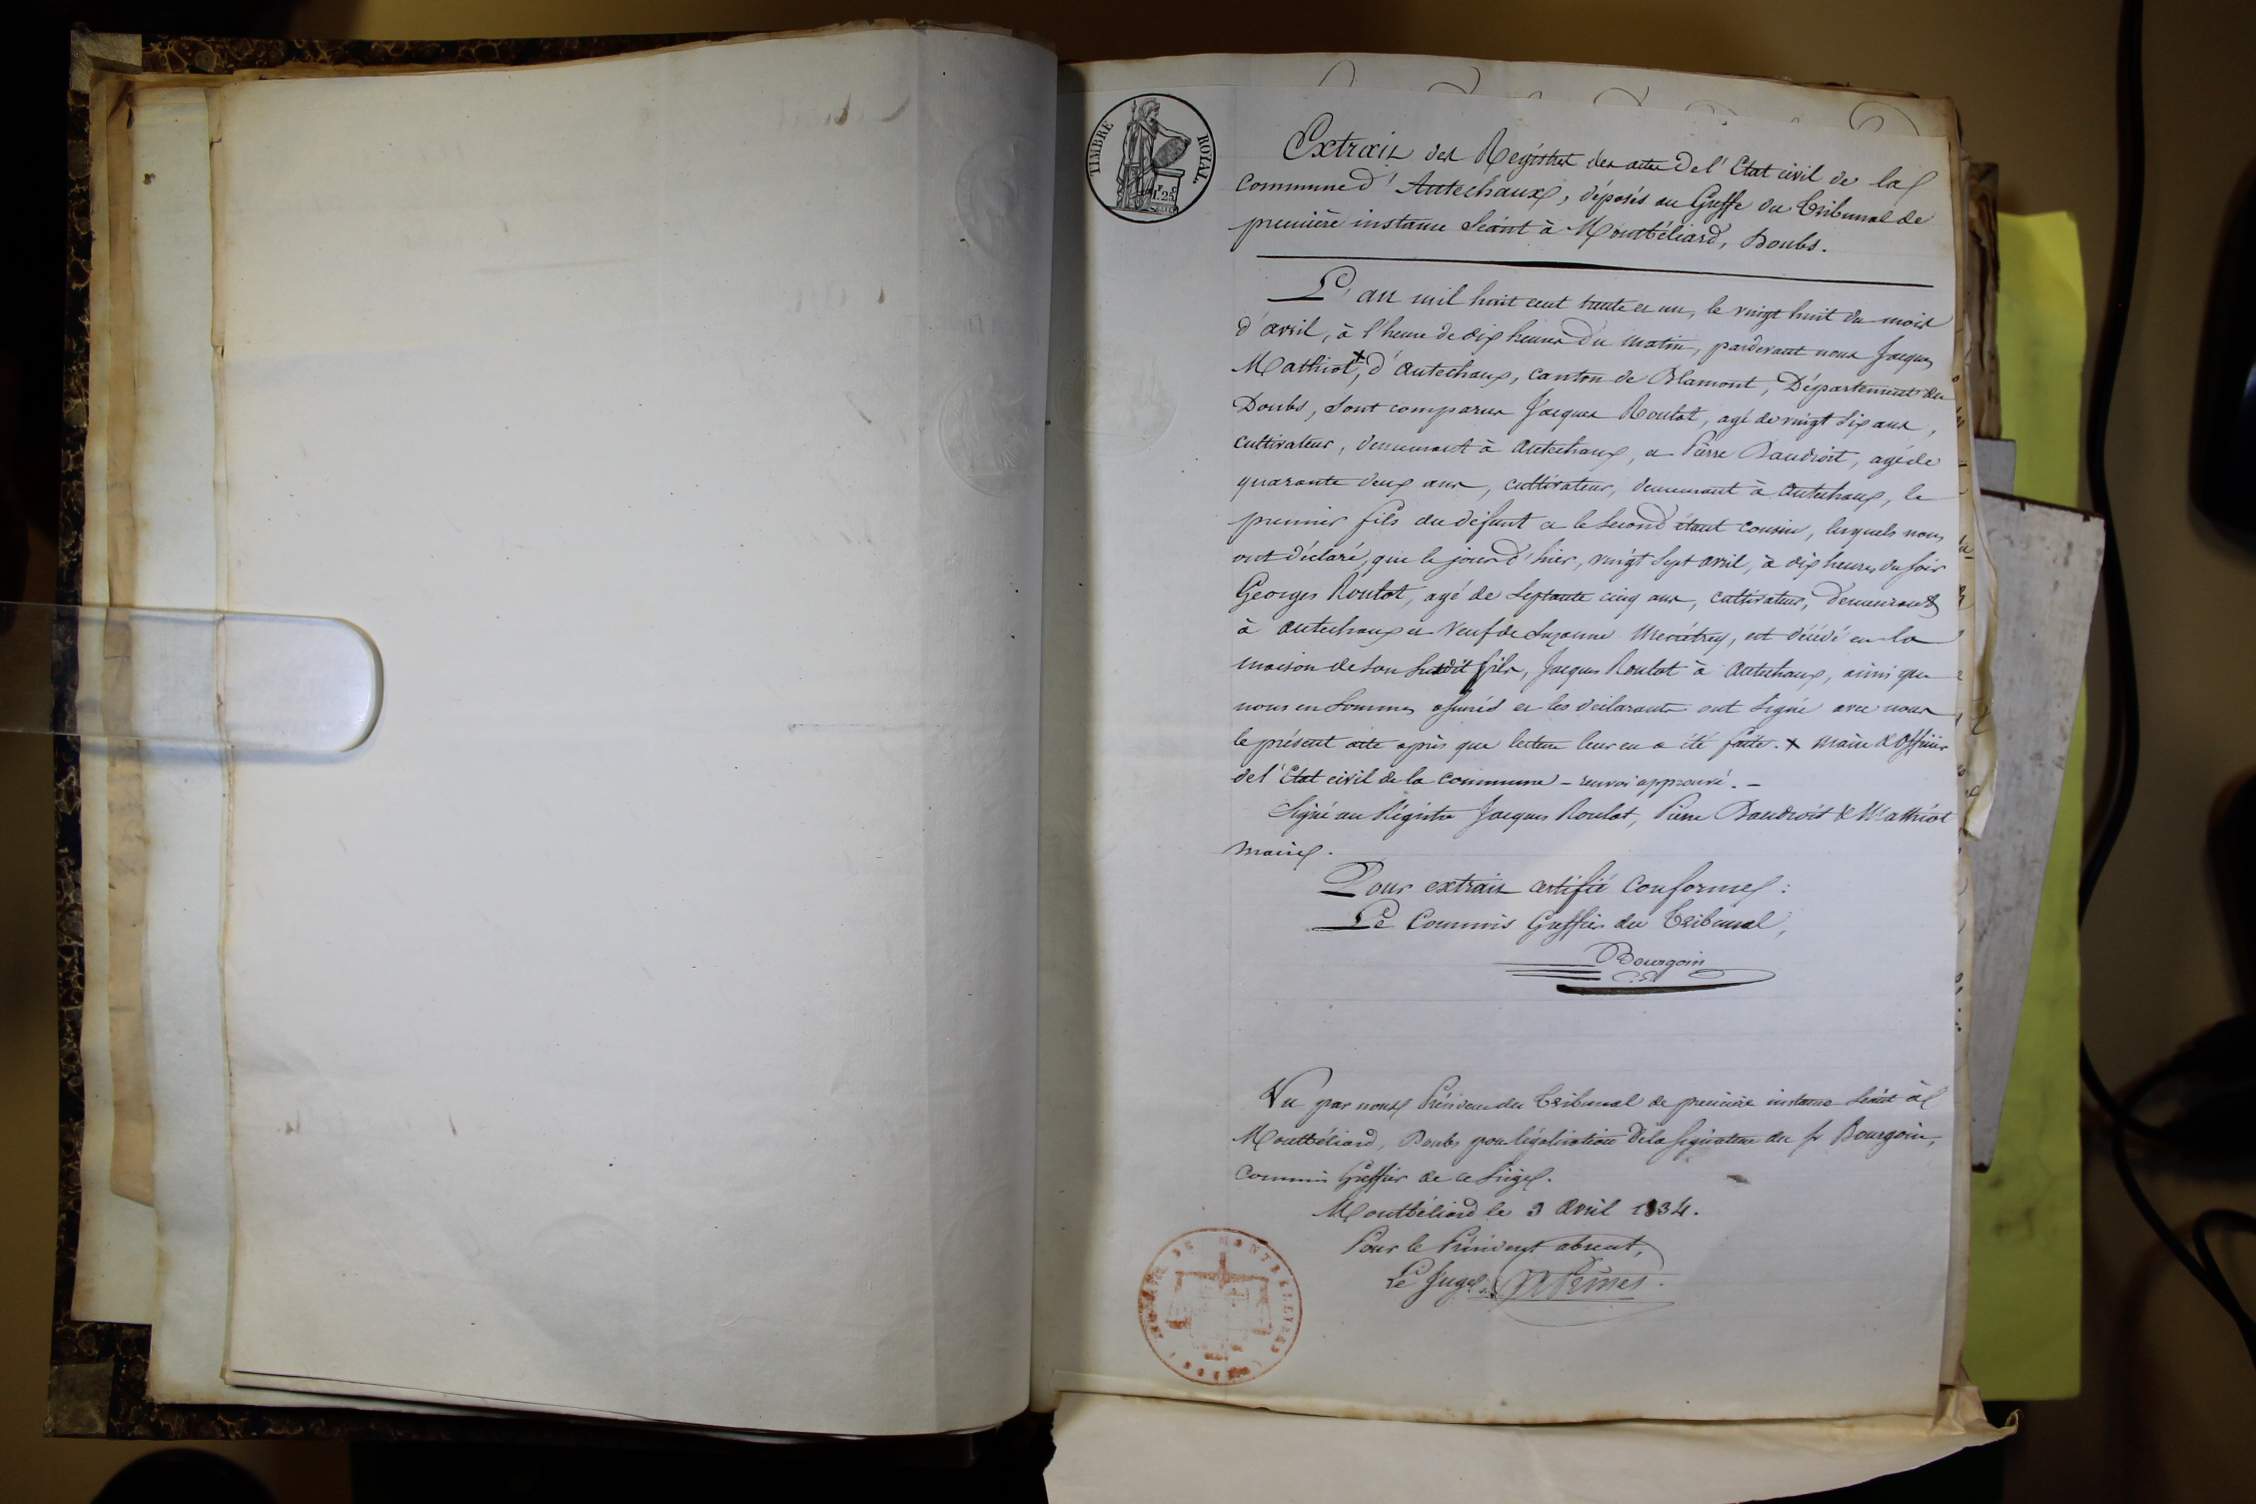 TIMBRE ROYAL.
1.F 25.C
Extrait des Registres des actes de l'Etat civil de la
commune d'Autechaux, déposés au Greffe du Tribunal de
première instance séant à Montbéliard, Doubs.
L'an mil huit cent trente et un, le vingt huit du mois
d'avril, à l'heure de dix heures du matin, pardevant nous Jacques
Mathiot x, d'Autechaux, canton de Blamont, Département du
Doubs, sont comparus Jacques Roulot, agé de vingt six ans,
cultivateur, demeurant à Autechaux, et Pierre Dandroit, agé de
quarante deux ans, cultivateur, demeurant à Autechaux, le
premier fils du défunt et le second étant cousin, lesquels nous
ont déclaré, que le jour d'hier, vingt sept avril, à dix heures du soir
Georges Roulot, agé de septante cinq ans, cultivateur, demeurant
à Autechaux et veuf de Suzanne, est décédé en la
maison de son susdit fils, Jacques Roulot à Autechaux, ainsi que
nous en sommes assurés et les déclarants ont signé avec nous
le présent acte après que lecture leur en a été faite. x maire & officier
de l'Etat civil de la commune - renvoi approuvé. -
Signé au Régistre Jacques Roulot, Pierre Dandroit & Mathiot
maire.
Pour extrait certifié conforme :
Le Commis Greffier du Tribunal,
Bourgoin
Vu par nous Président du Tribunal de première instance séant à
Montbéliard, Doubs pour légalisation de la signature du sr Bourgoin,
commis Greffier de ce siège.
Montbéliard le 3 avril 1834.
Pour le Président absent,
Le Juge